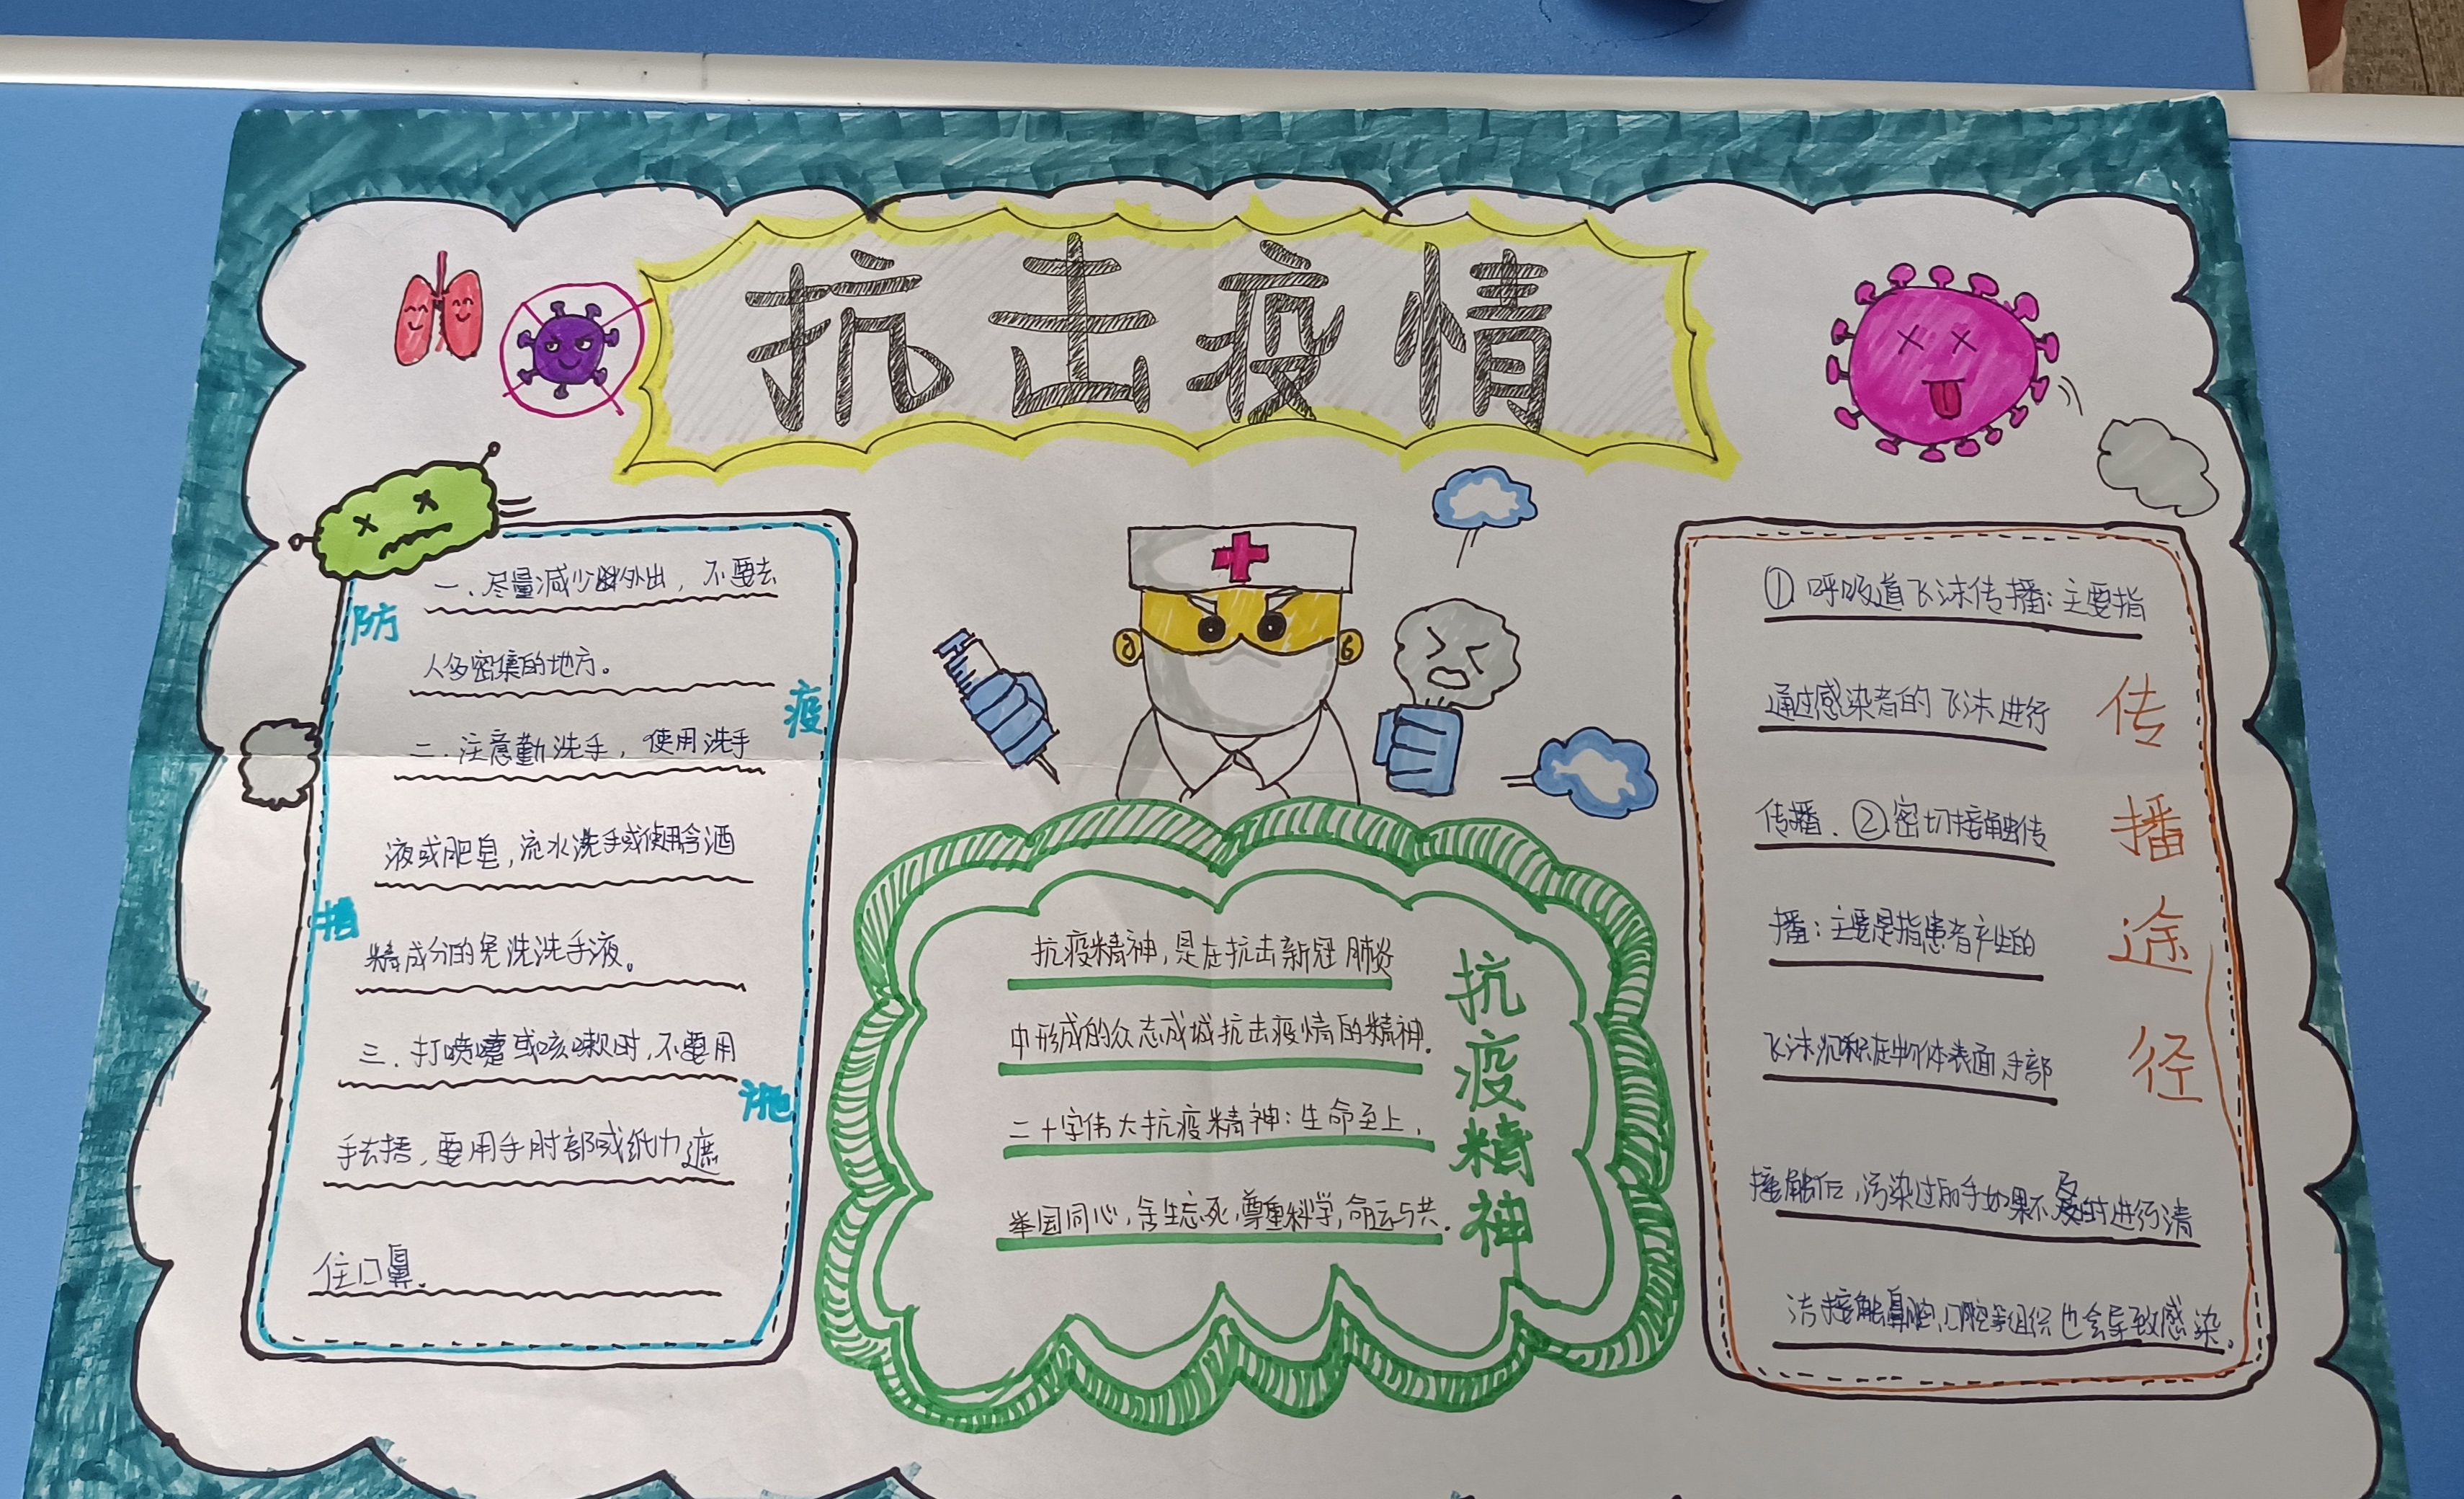 抗击疫情
防疫措施
一、尽量减少外出，不要去
人多密集的地方。
二、注意勤洗手，使用洗手
液或肥皂，流水洗手或使用含酒
精成分的免洗洗手液。
三、打喷嚏或咳嗽时，不要用
手去捂，要用手肘部或纸巾遮
住口鼻。
抗疫精神
抗疫精神，是在抗击新冠肺炎
中形成的众志成城抗击疫情的精神.
二十字伟大抗疫精神：生命至上，
举国同心，舍生忘死，尊重科学，命运与共.
传播途径
①呼吸道飞沫传播：主要指
通过感染者的飞沫进行
传播、②密切接触传
播：主要是指患者产生的
飞沫沉积在物体表面，手部
接触后，污染过的手如果不及时进行清
洁接触鼻腔、口腔等组织也会导致感染.